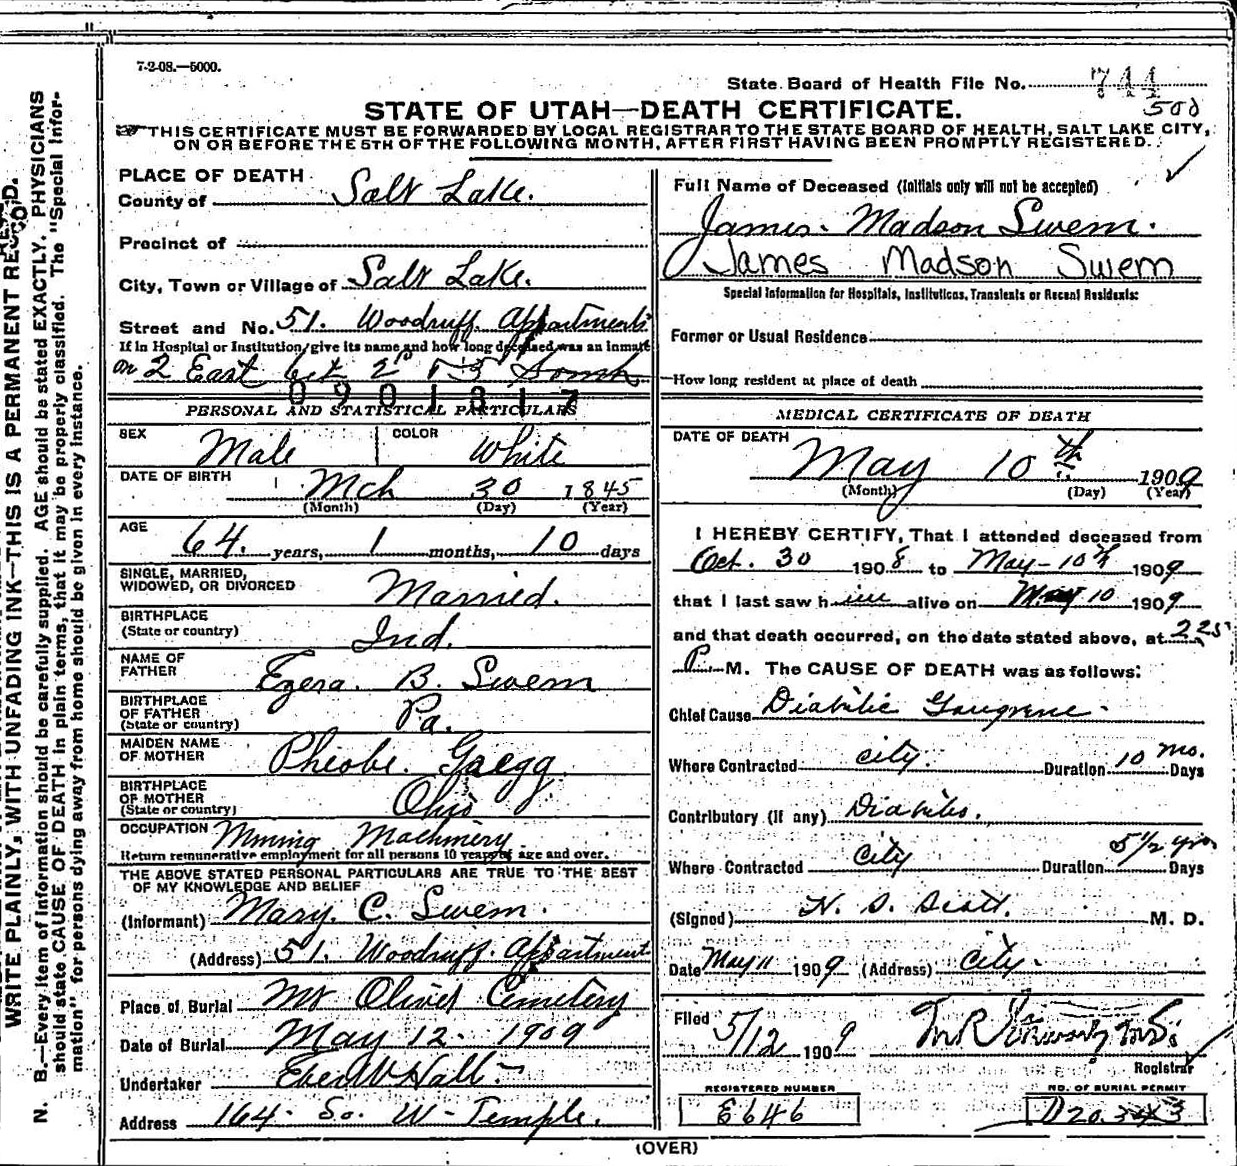 7-2-08.—5000.
State Board of Health File No. 744
500
STATE OF UTAH—DEATH CERTIFICATE.
THIS CERTIFICATE MUST BE FORWARDED BY LOCAL REGISTRAR TO THE STATE BOARD OF HEALTH, SALT LAKE CITY,
ON OR BEFORE THE 5TH OF THE FOLLOWING MONTH, AFTER FIRST HAVING BEEN PROMPTLY REGISTERED.
WRITE PLAINLY, WITH UNFADING INK—THIS IS A PERMANENT RECORD.
N. B.—Every item of information should be carefully supplied. AGE should be stated EXACTLY. PHYSICIANS
should state CAUSE OF DEATH in plain terms, that it may be properly classified. The "Special Infor-
mation" for persons dying away from home should be given in every instance.
PLACE OF DEATH
County of Salt Lake.
Precinct of
City, Town or Village of Salt Lake.
Street and No. 51. Woodruff. Appartments
If in Hospital or Institution, give its name and how long deceased was an inmate
on 2 East bet 2nd & 3 South
0901317
PERSONAL AND STATISTICAL PARTICULARS
SEX Male COLOR White
DATE OF BIRTH Mch 30 1845
(Month) (Day) (Year)
AGE 64. years, 1 months, 10 days
SINGLE, MARRIED,
WIDOWED, OR DIVORCED Married.
BIRTHPLACE
(State or country) Ind.
NAME OF
FATHER Ezera. B. Swem
BIRTHPLACE
OF FATHER
(State or country) Pa.
MAIDEN NAME
OF MOTHER Pheobe. Gregg
BIRTHPLACE
OF MOTHER
(State or country) Ohio
OCCUPATION Mining Machinery
Return remunerative employment for all persons 10 years of age and over.
THE ABOVE STATED PERSONAL PARTICULARS ARE TRUE TO THE BEST
OF MY KNOWLEDGE AND BELIEF
(Informant) Mary. C. Swem.
(Address) 51. Woodruff. Appartment
Place of Burial Mt Olivet Cemetery
Date of Burial May 12. 1909
Undertaker Eber W Hall
Address 164. So. W. Temple.
Full Name of Deceased (Initials only will not be accepted)
James. Madson Swem.
James Madson Swem
Special Information for Hospitals, Institutions, Transients or Recent Residents:
Former or Usual Residence
How long resident at place of death
MEDICAL CERTIFICATE OF DEATH
DATE OF DEATH
May 10th 1909
(Month) (Day) (Year)
I HEREBY CERTIFY, That I attended deceased from
Oct. 30 1908 to May-10th 1909
that I last saw him alive on May 10 1909
and that death occurred, on the date stated above, at 2 25
P. M. The CAUSE OF DEATH was as follows:
Chief Cause Diabetic Gangrene.
Where Contracted city. Duration 10 mo. Days
Contributory (If any) Diabetes.
Where Contracted City Duration 5 1/2 yrs Days
(Signed) M. D.
Date May 11 1909 (Address) City.
Filed 5/12 1909
Registrar
REGISTERED NUMBER
E646
NO. OF BURIAL PERMIT
(OVER)